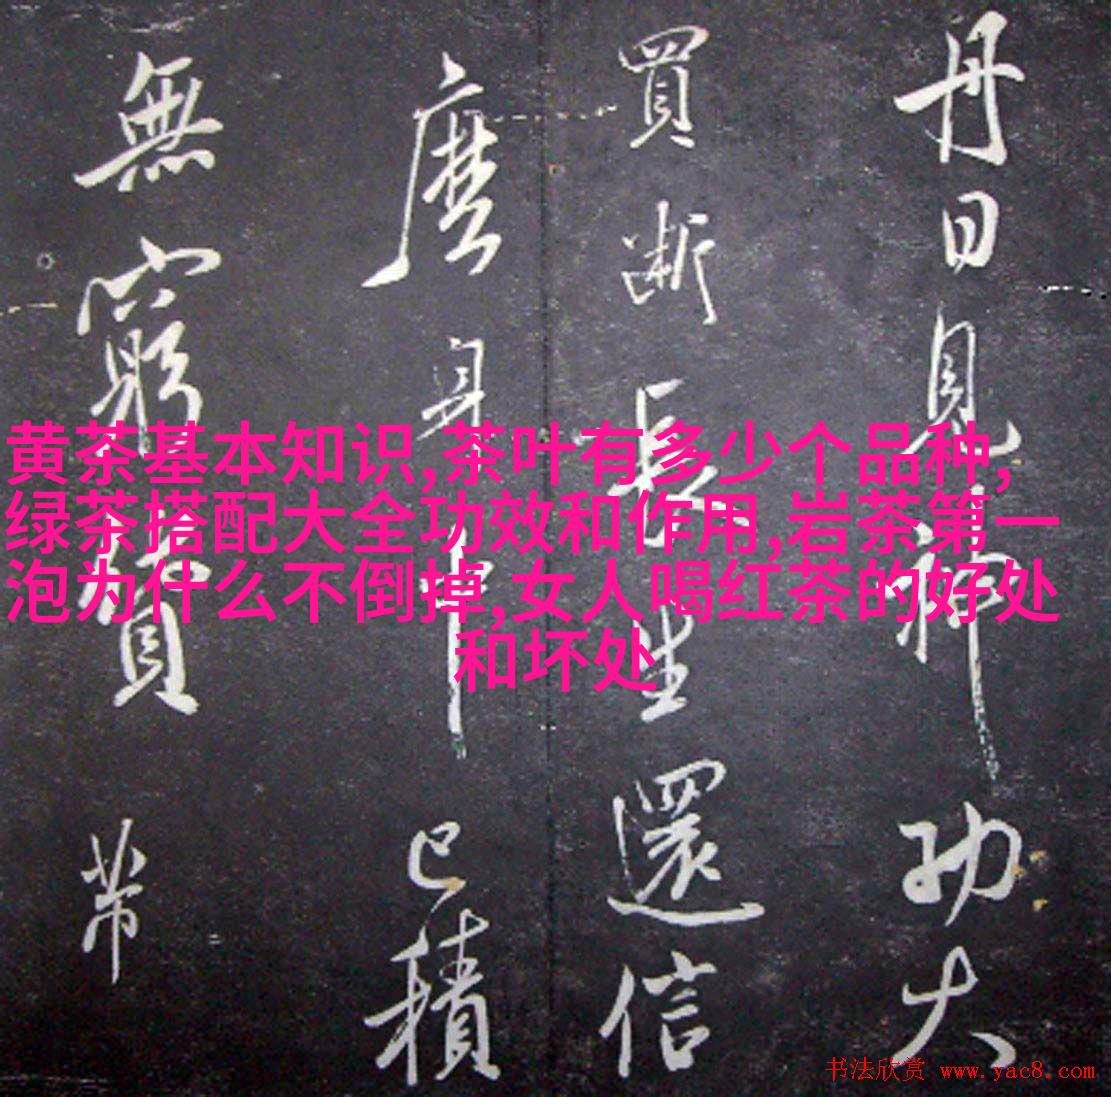 黄茶基本知识,茶叶有多少个品种,
绿茶搭配大全功效和作用,岩茶第一
泡为什么不倒掉,女人喝红茶的好处
和坏处
丹日見神功大
買断長生還信
麼身中已積
無窮寶带
书法欣赏 www.yac8.com